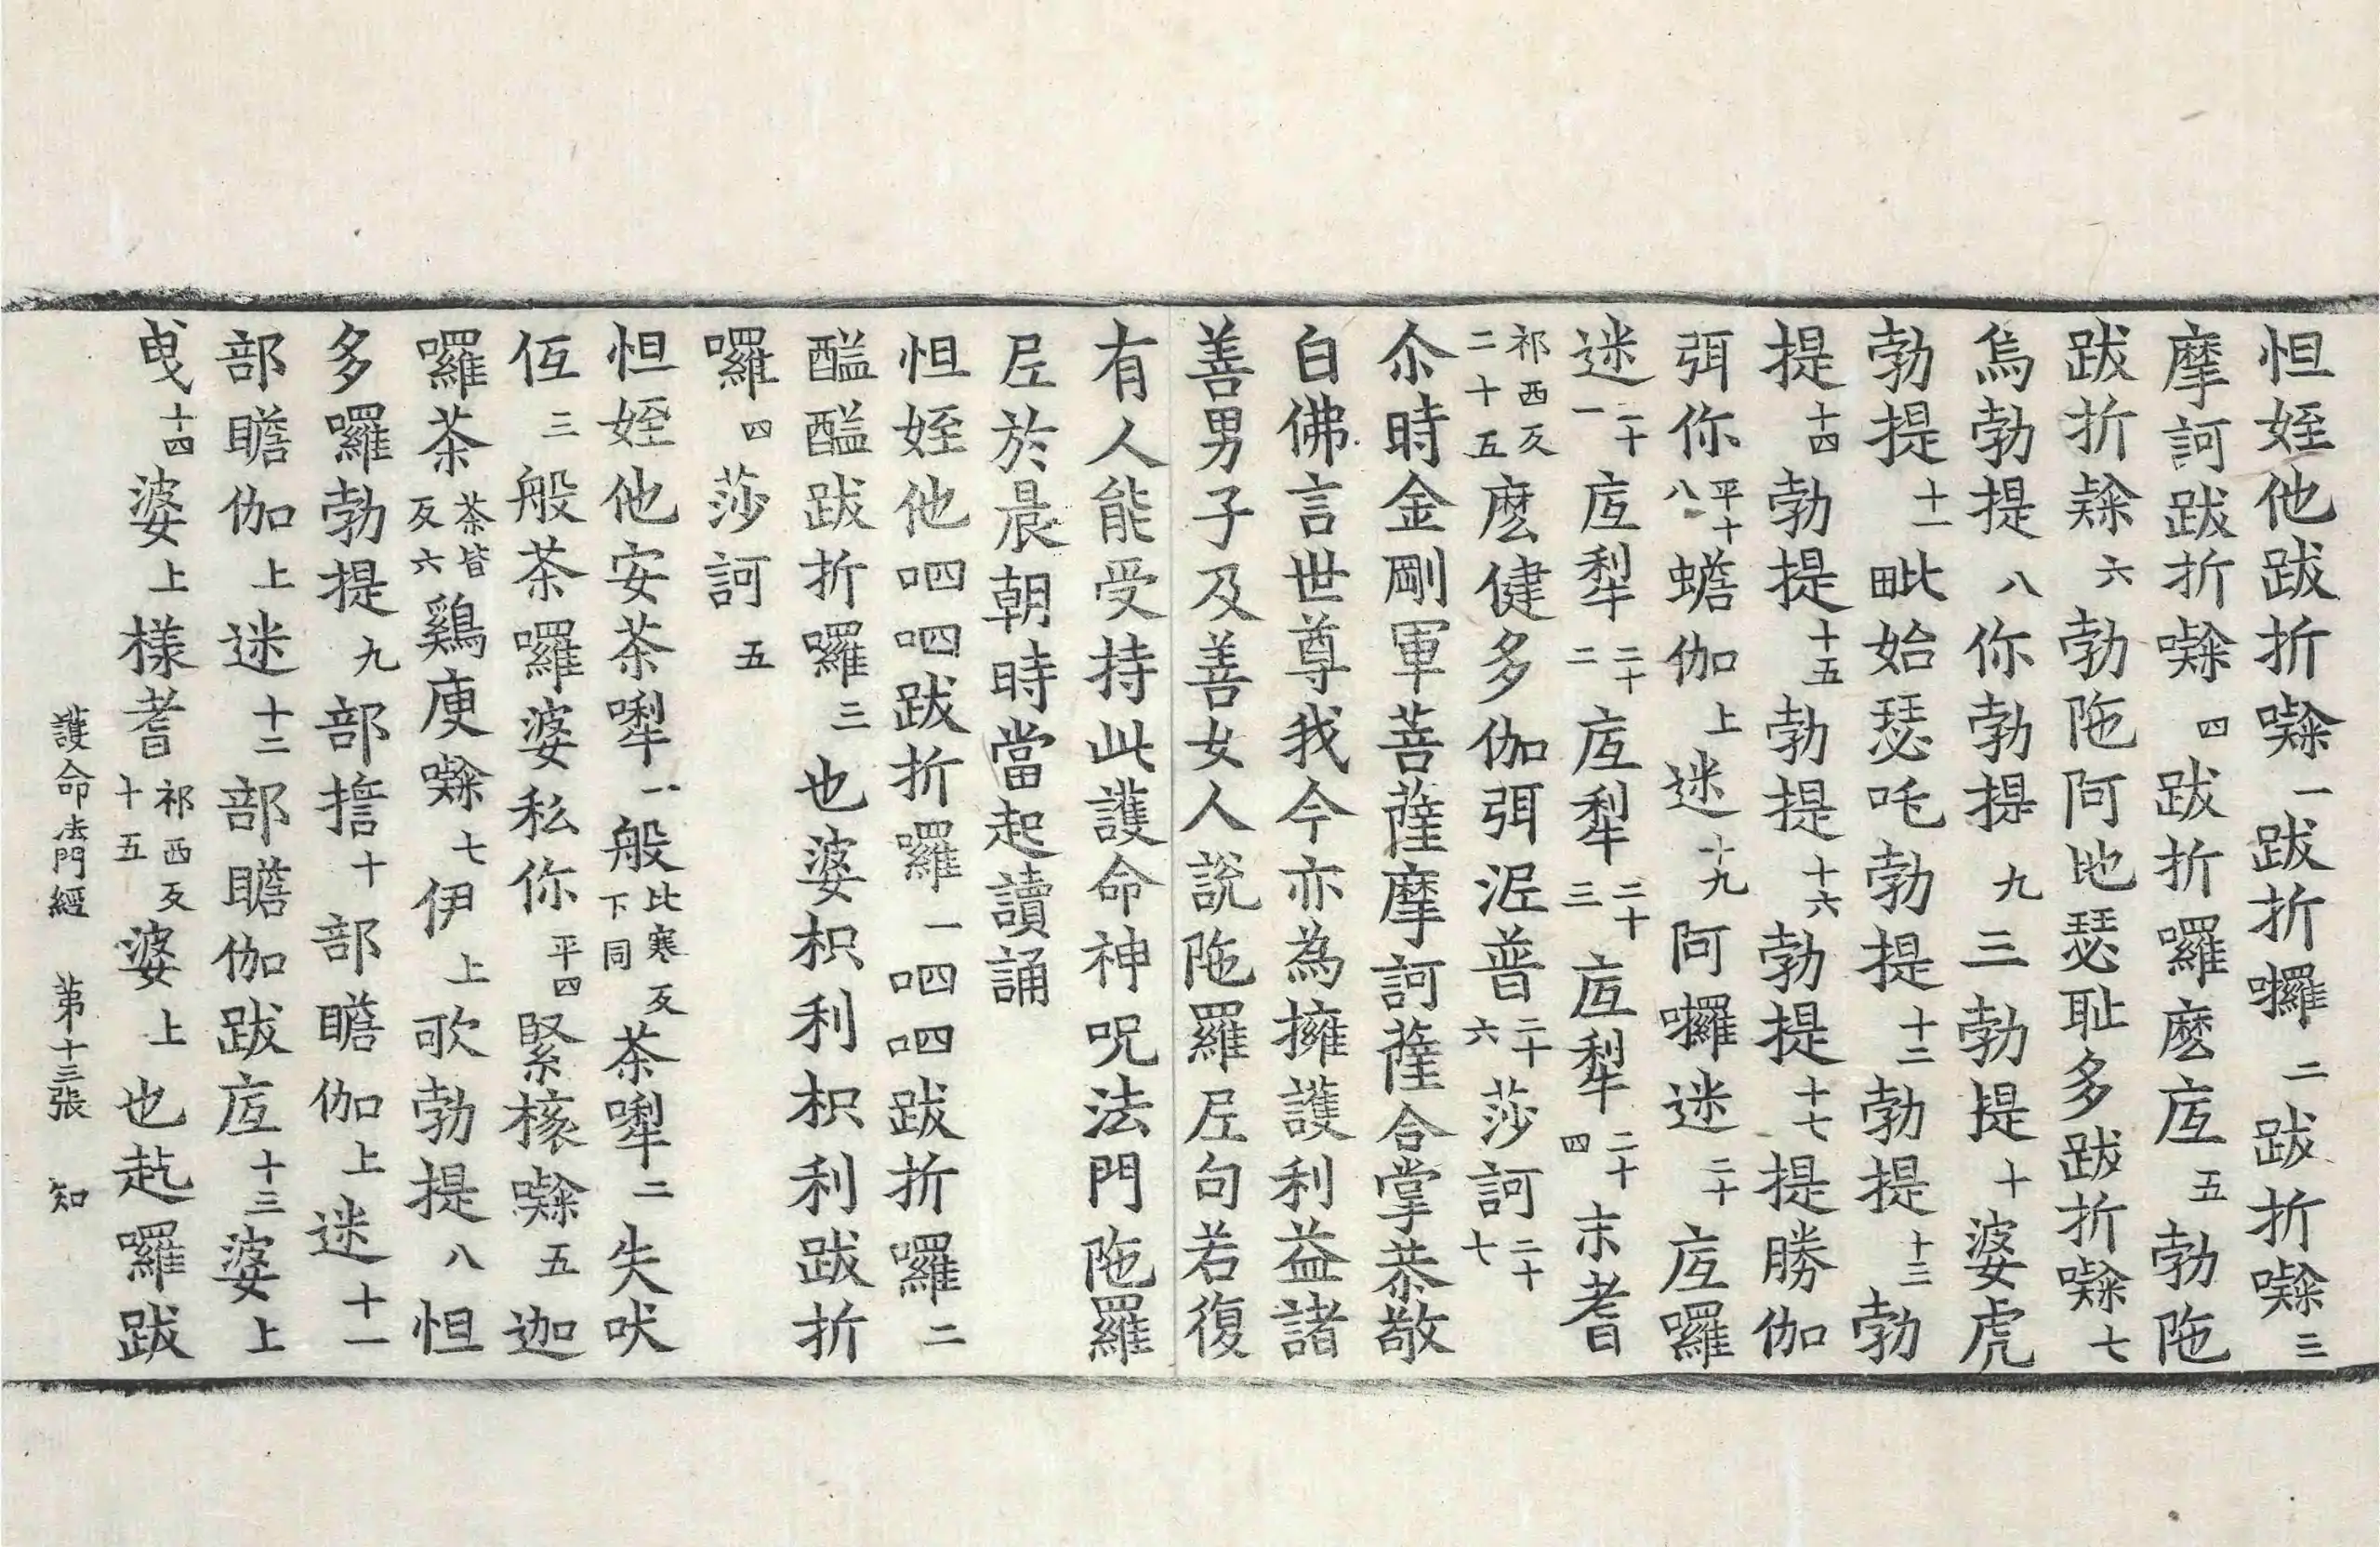 怛姪他跋折㘑一跋折囉二跋折㘑三
摩訶跋折㘑四跋折囉麽㢋五勃陁
跋折𨽻六勃陁阿地瑟耻多跋折㘑七
烏勃提八你勃提九三勃提十婆虎
勃提十一毗始瑟吒勃提十二勃提十三勃
提十四勃提十五勃提十六勃提十七提勝伽
弭你平十八蟾伽上迷十九阿囉迷二十㢋囉
迷二十一㢋犁二十二㢋犁二十三㢋犁二十四末耆
祁西反二十五麽健多伽弭泥普二十六莎訶二十七
尒時金剛軍菩薩摩訶薩合掌恭敬
白佛言世尊我今亦為擁護利益諸
善男子及善女人說陁羅𡰱句若復
有人能受持此護命神呪法門陁羅
𡰱於晨朝時當起讀誦
怛姪他呬呬跋折囉一呬呬跋折囉二
醯醯跋折囉三也婆枳利枳利跋折
囉四莎訶五
怛姪他安茶𠼝一般比寒反下同茶𠼝二失吠
伍三般茶囉婆私你平四緊㮈㘑五迦
囉茶茶皆反六鷄庾㘑七伊上歌勃提八怛
多囉勃提九部擔十部瞻伽上迷十一
部瞻伽上迷十二部瞻伽跋㢋十三婆上
曳十四婆上樣耆祁西反十五婆上也䞘囉跋
護命法門經　苐十三張　知